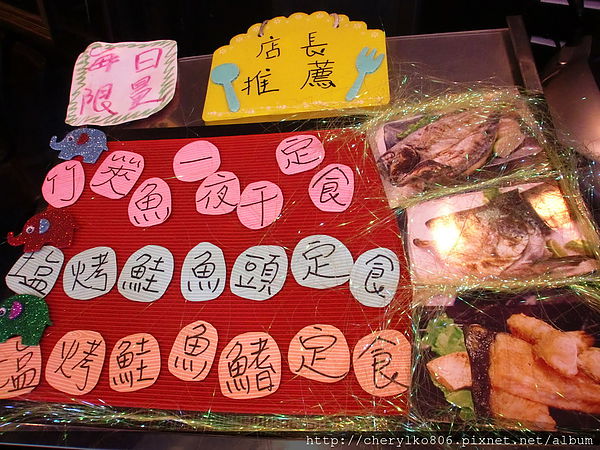 每日
限量
店長
推薦
竹筴魚一夜干定食
塩烤鮭魚頭定食
塩烤鮭魚鰭定食
http://cherylko806.pixnet.net/album